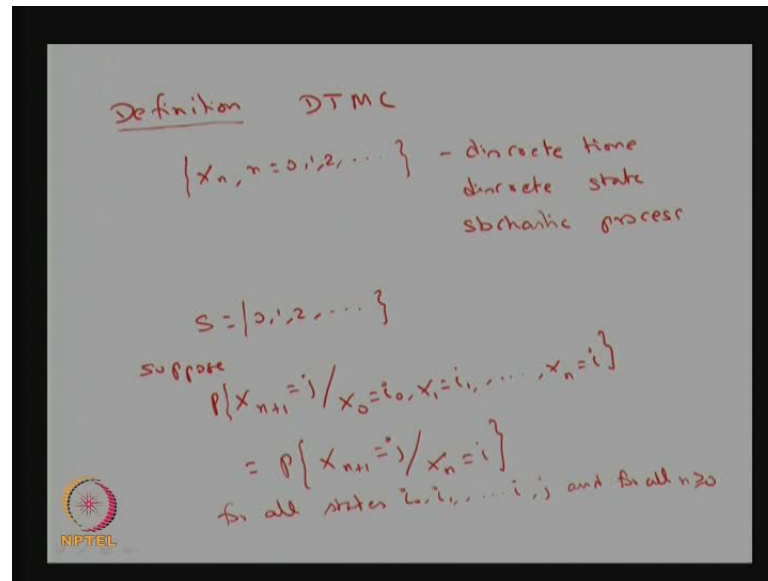 Definition DTMC
{Xn, n=0,1,2, ... } - discrete time
discrete state
stochastic process
S = {0,1,2, ... }
suppose
P{Xn+1 = j / X0 = i0, X1 = i1, ....., Xn = i}
= P{Xn+1 = j / Xn = i}
for all states i0, i1, .... i, j and for all n≥0
NPTEL